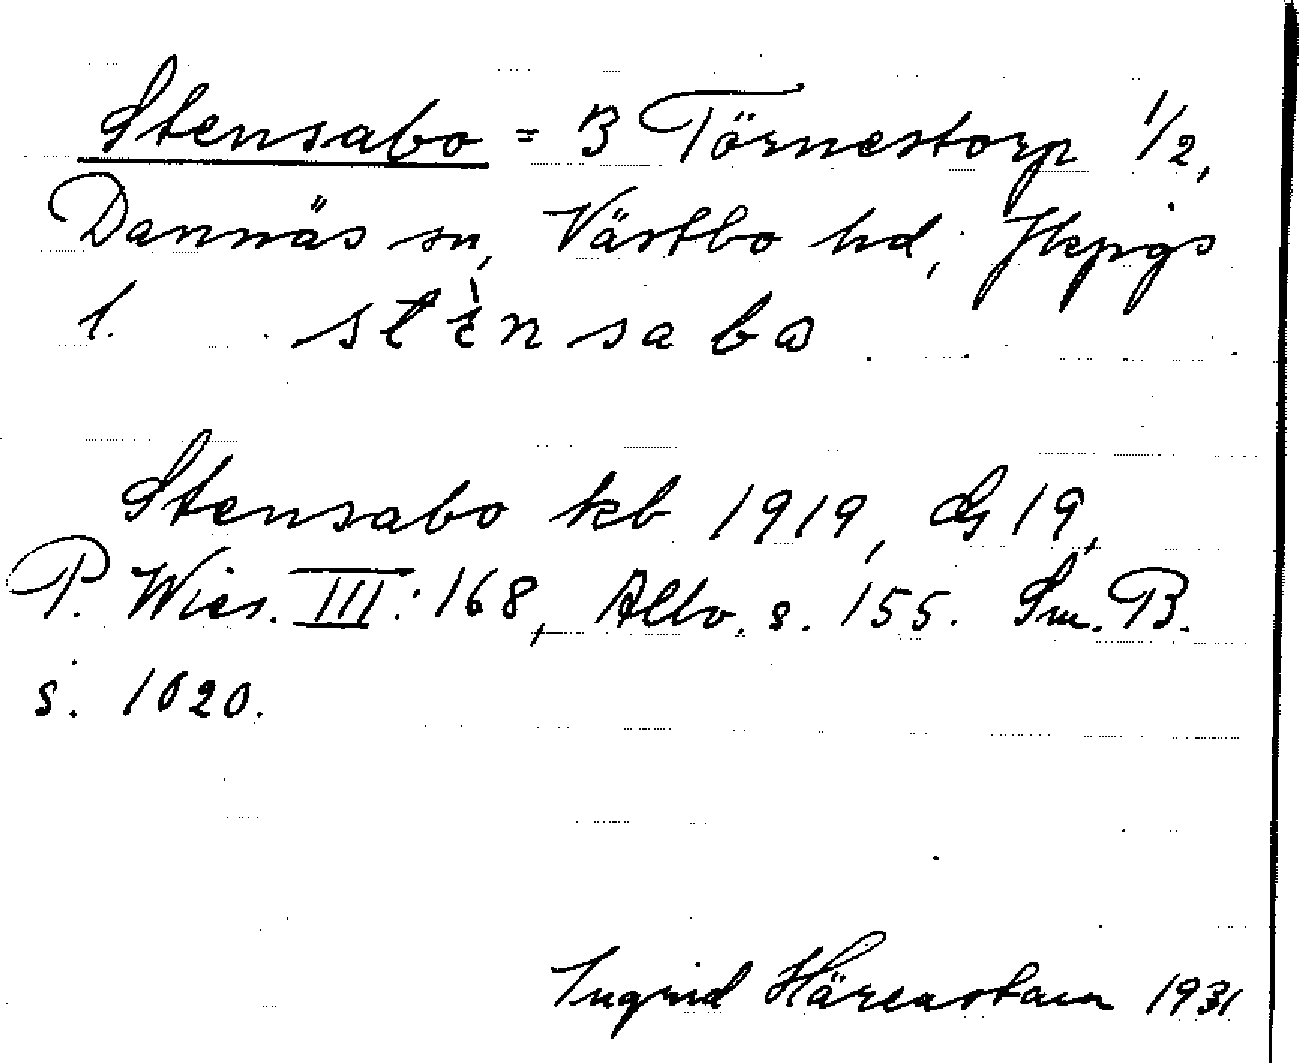 Stensabo = B Törnestorp 1/2,
Dannäs sn, Västbo hd, Jkpgs
l. stènsabo
Stensabo kb 1919, G 19,
P. Wies. III: 168, Allv. s. 155. Sm. B.
s. 1020.
Ingrid Härenstam 1931